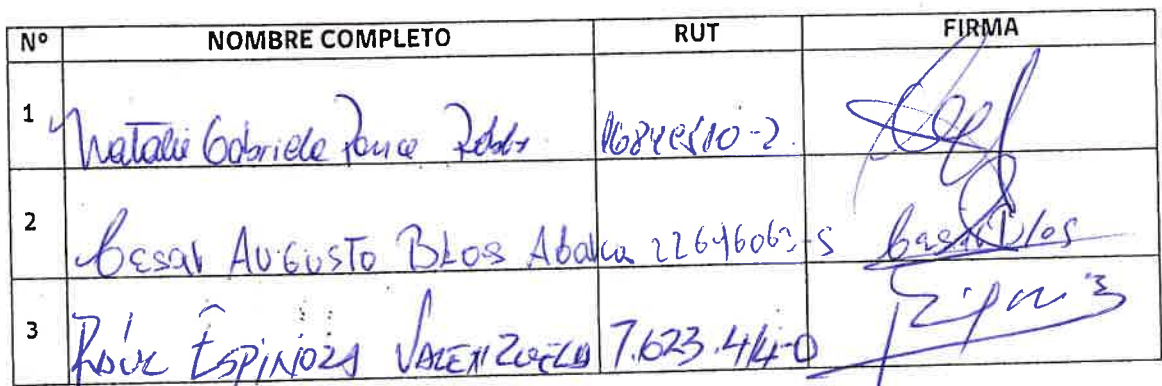 Nº NOMBRE COMPLETO RUT FIRMA
1 Natalie Gabriele Ponce
2 Cesar AUGUSTO BLOS Abarca 22646063-5 Cesar Blos
3 RAÚL ESPINOZA VALENZUELA 7.623.414-0